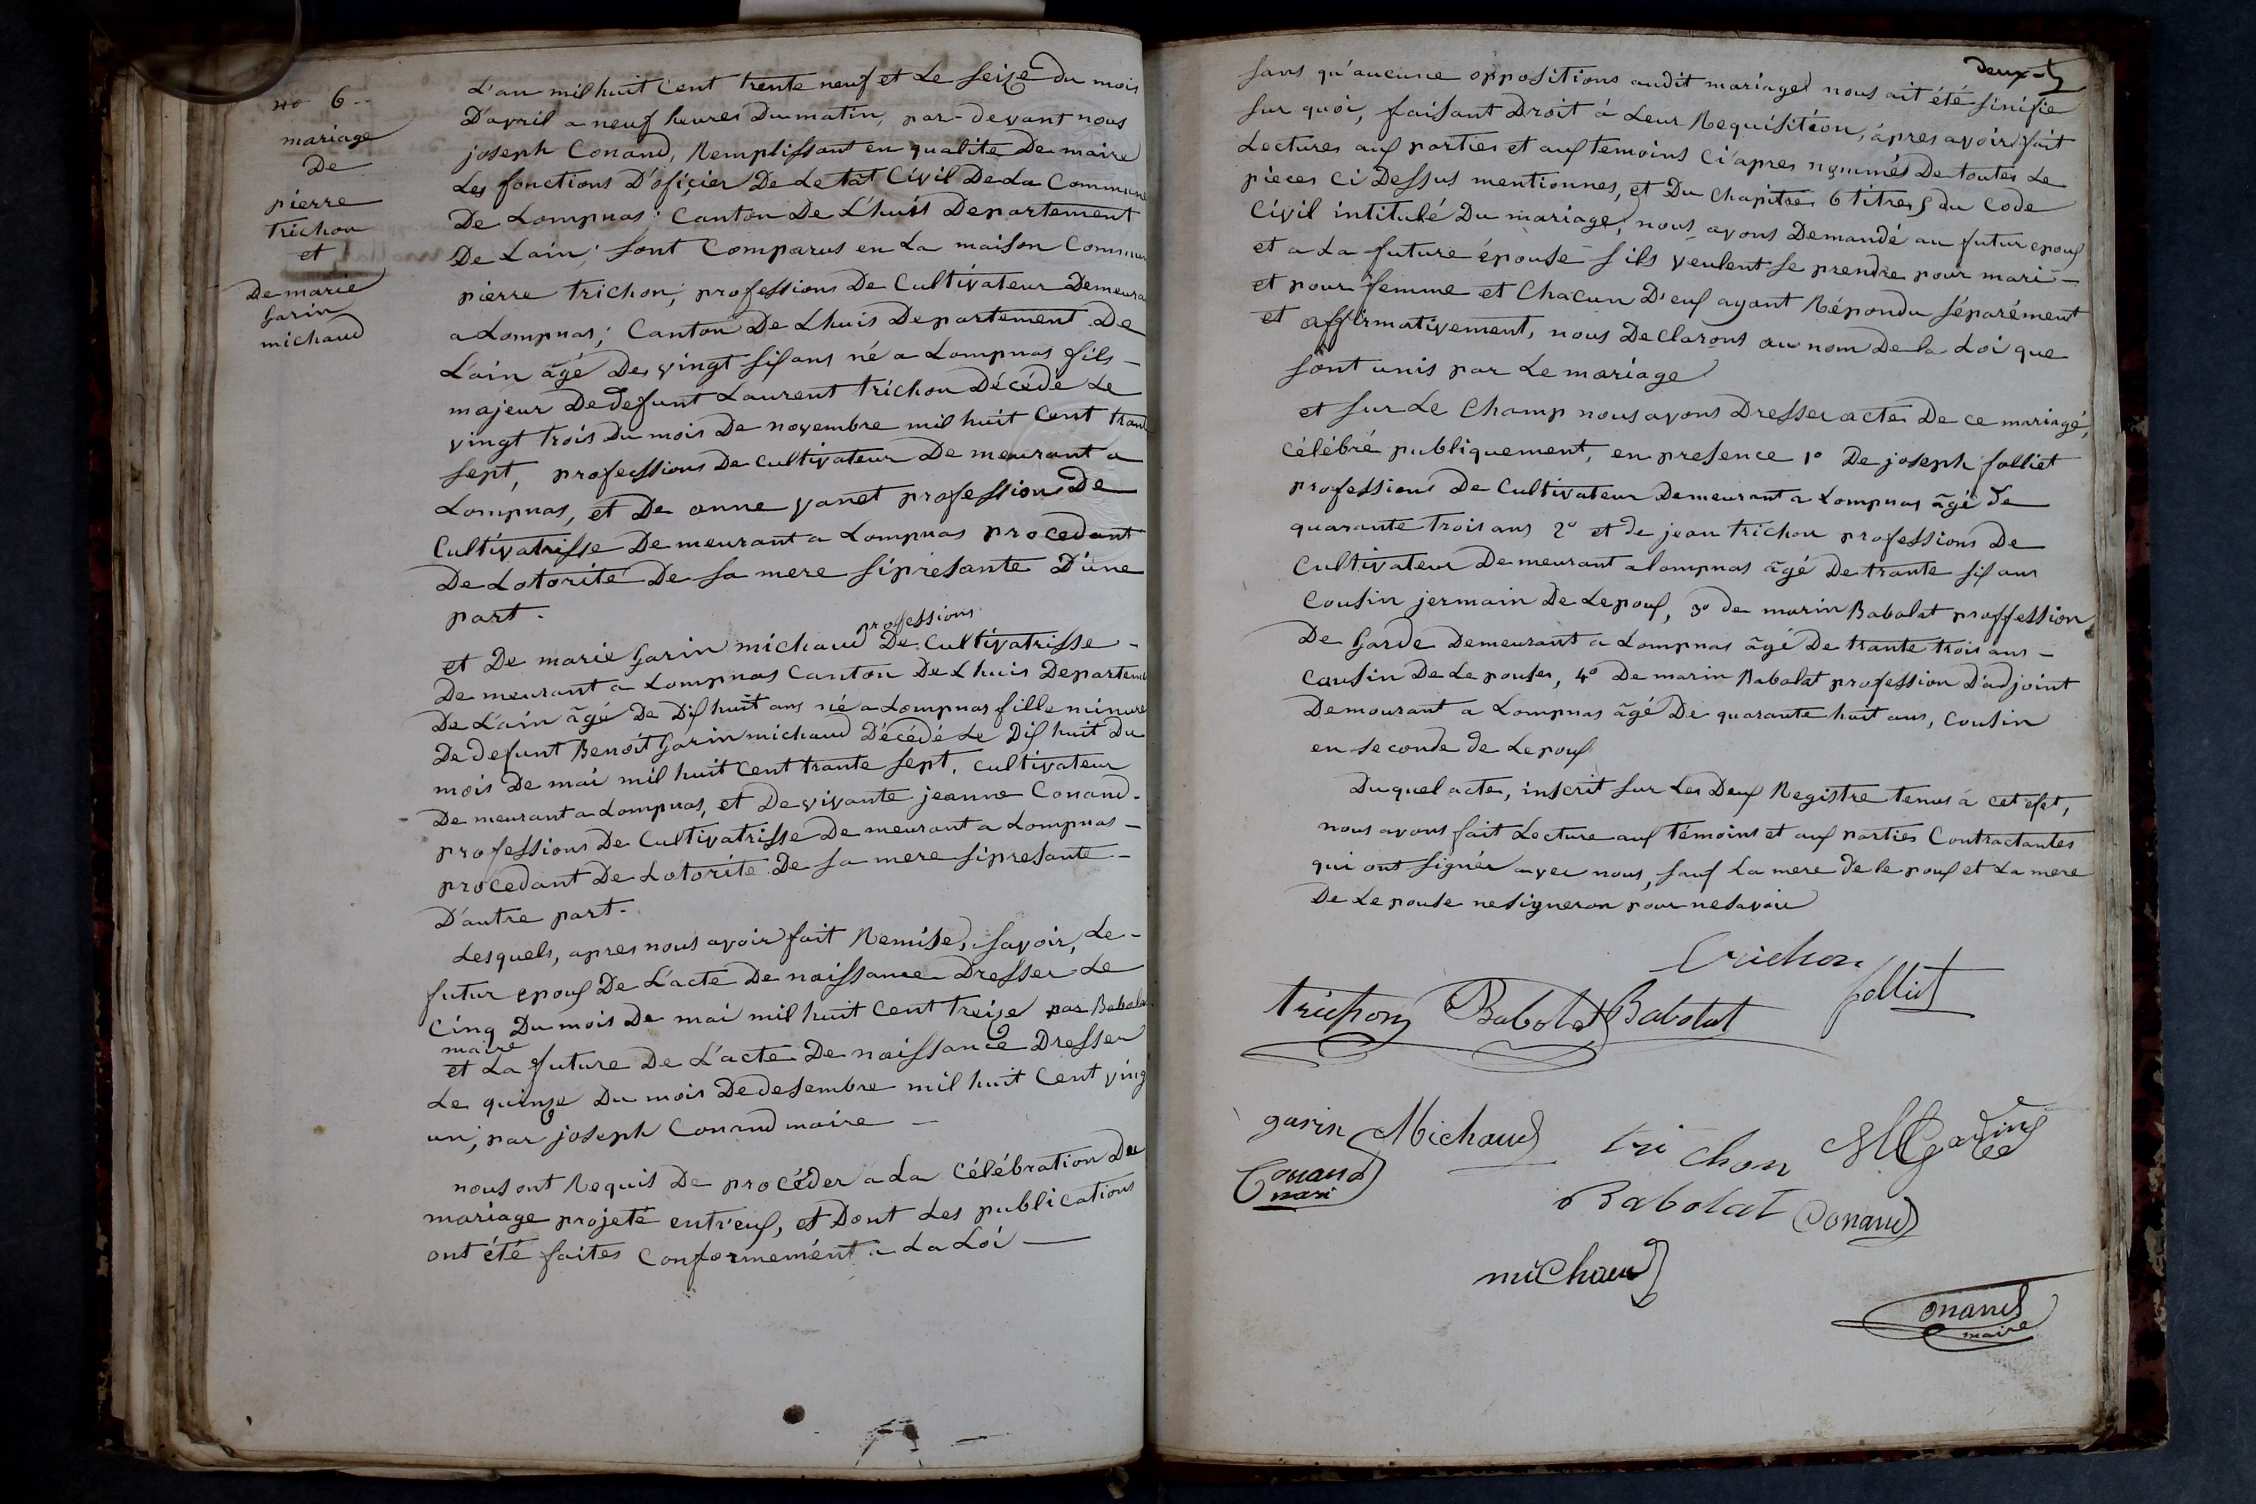 no 6
mariage
De
pierre
trichon
et
De marie
Garin
michaud
L'an mil huit Cent trente neuf et Le seize du mois
D'avril a neuf heures Du matin, par-devant nous
joseph Conand, Remplissant en qualité De maire
Les fonctions D'oficier De Letat Civil De La Commune
De Lompnas; Canton De L'huis Departement
De Lain; sont Comparus en La maison Commun
pierre trichon; professions De Cultivateur Demeura
a Lompnas; Canton De Lhuis Departement De
L'ain âgé Des vingt sis ans né a Lompnas fils-
majeur De defunt Laurent trichon Décédé Le
vingt trois Du mois De novembre mil huit Cent trant
sept, professions De cultivateur De meurant a
Lompnas, et De anne vanet professions De
Cultivatrisse De meurant a Lompnas procedant
De Lotorité De sa mere sipresante D'une
part.
professions
et De marie Garin michaud De Cultivatrisse-
De meurant a Lompnas Canton De Lhuis Departeme
De L'ain âgé De Dis huit ans né a Lompnas fille minure
De defunt Benoit Garin michaud Décédé Le Dis huit Du
mois De mai mil huit Cent trante sept, cultivateur
De meurant a Lompnas, et De vivante jeanne Conand-
professions De Cultivatrisse De meurant a Lompnas-
procedant De Lotorité De sa mere sipresante-
D'autre part-
Lesquels, apres nous avoir fait Remise, savoir, Le-
futur epous De L'acte De naissance Dresser Le
Cinq Du mois De mai mil huit Cent treize par Babola
maire
et La future De L'acte De naissance Dresser
Le quinze Du mois De desembre mil huit Cent ving
un, par joseph Conand maire-
nous ont Requis De procéder a La Célébration Du
mariage projeté entr'eus, et Dont Les publications
ont été faites Conformement a La Loi-
deux
sans qu'aucune oppositions audit mariage nous ait été sinifie
sur quoi, faisant Droit á Leur Requisitéon, ápres avoir fait
Lectures aus parties et aus temoins Ci'apres nommés De toutes Le
pieces Ci Dessus mentionnes, et Du Chapitre 6 titre 5 du Code
Civil intitulé Du mariage, nous avons Demandé au futur epous
et a La future épouse s'ils veulent se prendre pour mari-
et pour femme et Chacun D'eus ayant Répondu séparément
et affirmativement, nous Declarons au nom De la Loi que
sont unis par Le mariage
et sur Le Champ nous avons Dresser acte De ce mariagé,
Célébré publiquement, en presence 1o De joseph folliet
professions De Cultivateur Demeurant a Lompnas âgé de
quarante trois ans 2o et de jean trichon professions De
Cultivateur Demeurant a lompnas âgé De trante sis ans
Cousin jermain De Lepous, 3o de marin Babolat proffession
De Garde Demeurant a Lompnas âgé De trante trois ans-
cousin De Le pouser, 4o De marin Babolat profession D'adjoint
Demourant a Lompnas âgé De quarante huit ans, Cousin
en seconde de Lepous
Du quel acte, inscrit sur Les Deus Registre tenus á cet efet,
nous avons fait Lecture aus témoins et aus parties Contractantes
qui ont signér avec nous, sauf La mere de le pous et La mere
De Le pouse ne signeron pour ne savoir
trichon
trichon Babolat Babolat folliet
garin Michaud trichon MGarin
Conand
mari
Babolat Conand
michaud
Conand
maire